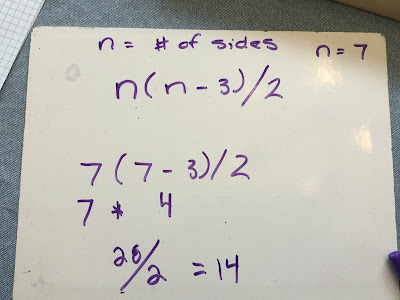 n = # of sides
n = 7
n(n - 3)/2
7(7 - 3)/2
7 * 4
28/2 = 14